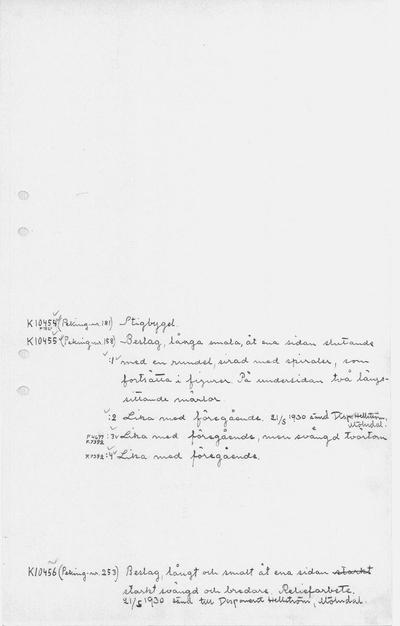 K10454 (Peking nr 181) Stigbygel.
K10455 (Peking nr 188) Beslag, långa smala, åt ena sidan slutande
:1 med en rundel, sirad med spiraler, som
fortsätta i figurer. På undersidan två långs-
sittande märlor.
:2 Lika med föregående. 21/5 1930 sänd Disp. Hellström,
Mölndal.
:3 Lika med föregående, men svängd tvärtom
K7392 :4 Lika med föregående.
K10456 (Peking-nr. 253) Beslag, långt och smalt åt ena sidan starkt
starkt svängd och bredare. Reliefarbete.
21/5 1930 sänd till Disponent Hellström, Mölndal.